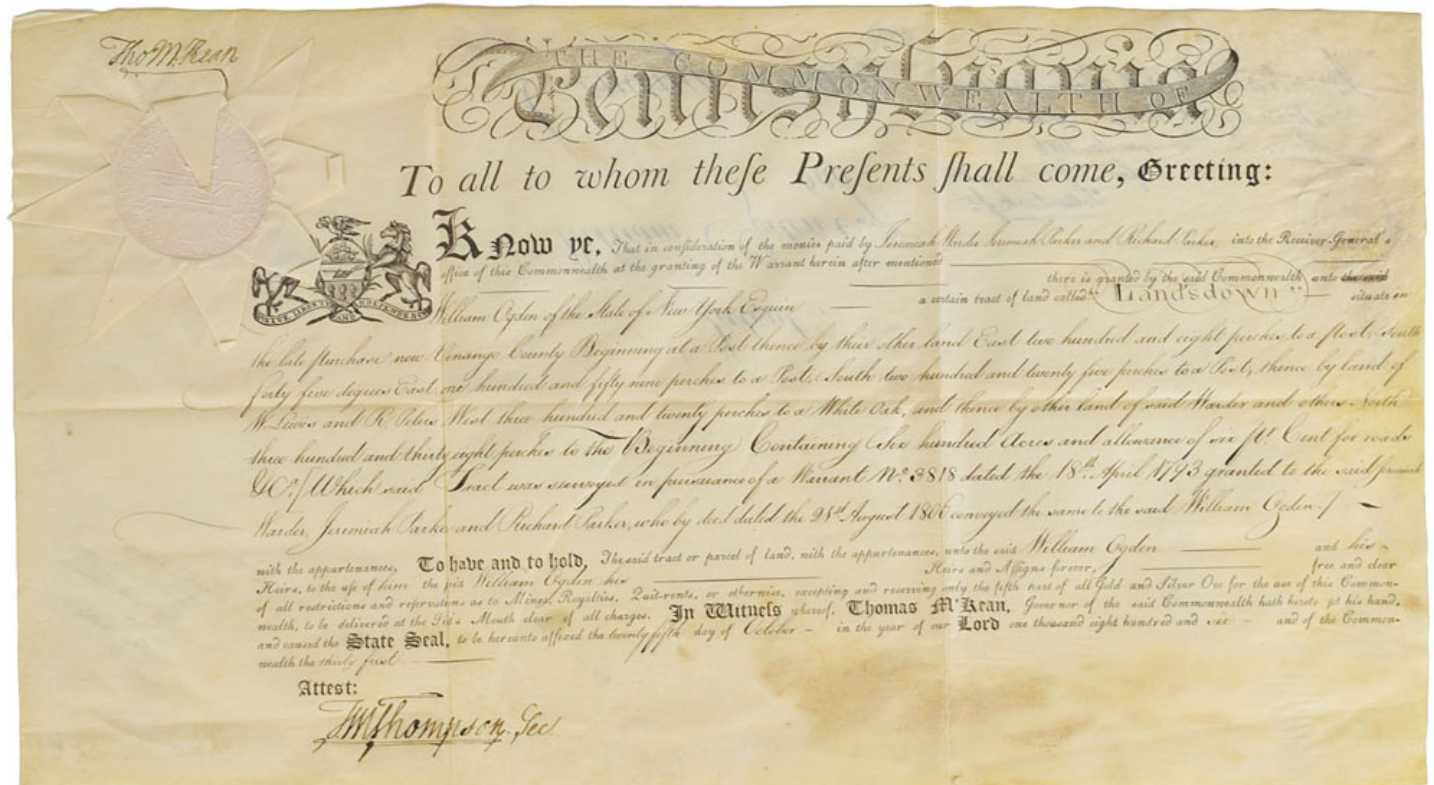 Tho M:Kean
THE COMMONWEALTH OF
Pennsylvania
To all to whom theſe Preſents ſhall come, Greeting:
Know ye, That in conſideration of the monies paid by Jeremiah Warder Jeremiah Parker and Richard Parker, into the Receiver-General's
office of this Commonwealth at the granting of the Warrant herein after mentioned
there is granted by the said Commonwealth unto the said
William Ogden of the State of New York Esquire a certain tract of land called "Landsdown" situate in
the late purchase now Venango County Beginning at a Post thence by their other land East two hundred and eight perches to a post, South
forty five degrees East, one hundred and fifty nine perches to a Post, South two hundred and twenty five perches to a Post, thence by land of
W. Lewis and R. Peters West three hundred and twenty perches to a White Oak, and thence by other land of said Warder and others North
three hundred and thirty eight perches to the Beginning Containing Six hundred Acres and allowance of six Pr. Cent for roads
&Ca. [Which said Tract was surveyed in pursuance of a Warrant No. 3818 dated the 18th. April 1793 granted to the said Jeremiah
Warder, Jeremiah Parker and Richard Parker, who by deed dated the 21st. August 1806 conveyed the same to the said William Ogden.]
with the appurtenances. To have and to hold, The said tract or parcel of land, with the appurtenances, unto the said William Ogden and his
Heirs, to the uſe of him the said William Ogden his Heirs and Aſſigns forever, free and clear
of all restrictions and reſervations as to Mines, Royalties, Quit-rents, or otherwise, excepting and reserving only the fifth part of all Gold and Silver Ore for the use of this Common-
wealth, to be delivered at the Pit's Mouth clear of all charges. In Witneſs whereof, Thomas M'Kean, Governor of the said Commonwealth hath hereto set his hand,
and caused the State Seal, to be hereunto affixed the twenty fifth day of October in the year of our Lord one thousand eight hundred and six and of the Common-
wealth the thirty first
Attest:
TM Thompson, Sec